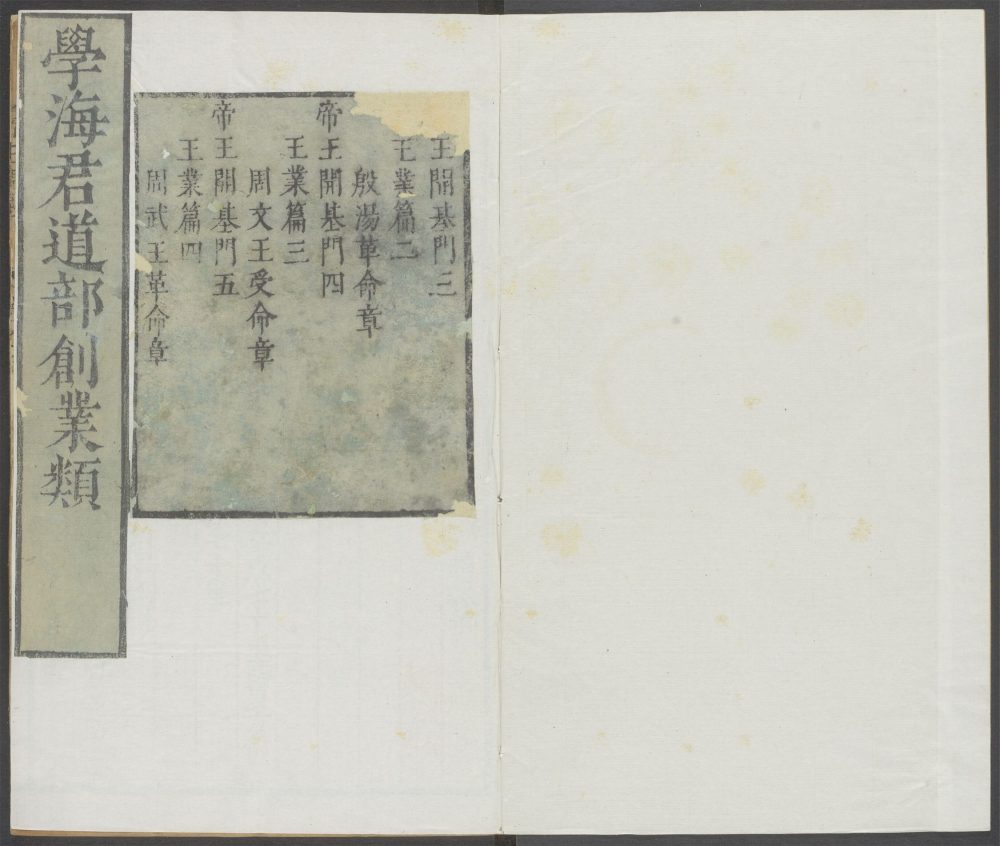 王開基門三
王業篇二
殷湯革命章
帝王開基門四
王業篇三
周文王受命章
帝王開基門五
王業篇四
周武王革命章
學海君道部創業類